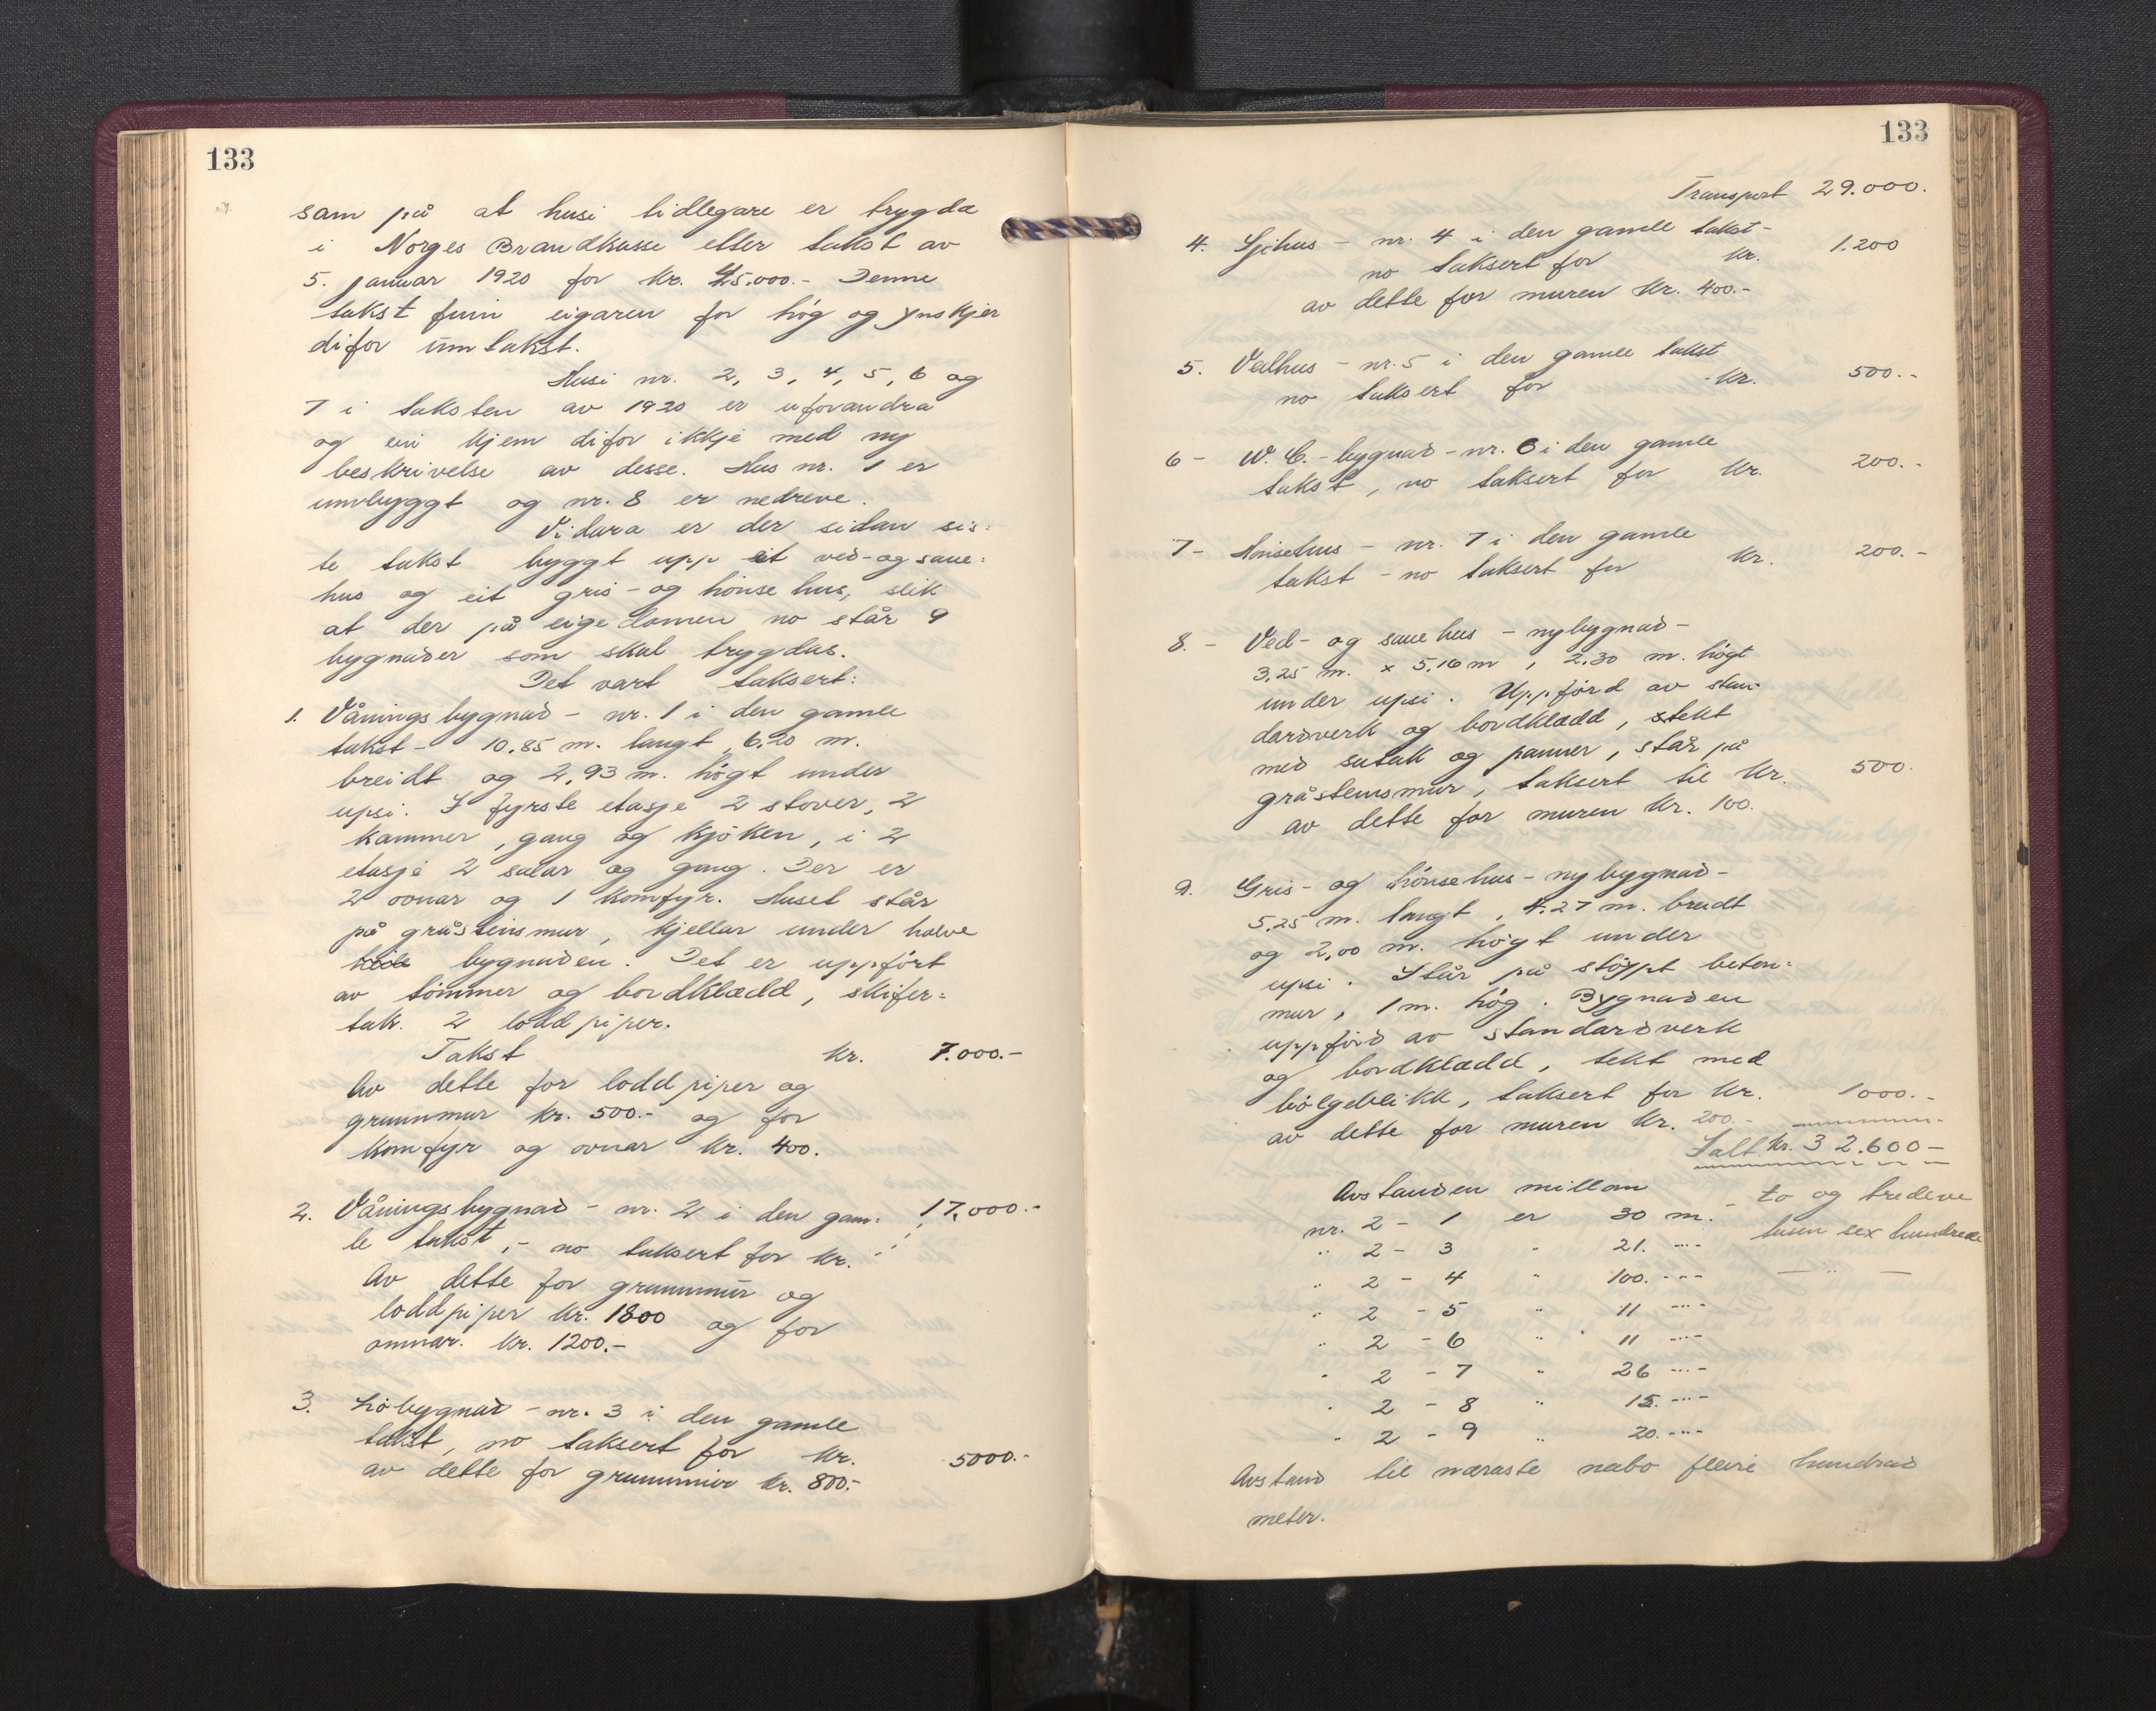 133
sam på at husi tidlegare er trygda
i Norges Brandkasse etter takst av
5. januar 1920 for kr. 45.000.- Denne
takst finn eigaren for høg og ynskjer
difor umtakst.
Husi nr. 2, 3, 4, 5, 6 og
7 i taksten av 1920 er uforandra
og ein kjem difor ikkje med ny
beskrivelse av desse. Hus nr. 1 er
umbyggt og nr. 8 er nedreve.
Vidara er der sidan sis:
te takst byggt upp eit ved-og saue:
hus og eit gris-og hönsehus, slik
at der på eigedomen no står 9
bygnader som skal trygdas.
Det vart taksert:
1. Våningsbygnad - nr. 1 i den gamle
takst - 10.85 m. langt, 6.20 m.
breidt og 2,93 m. högt under
upsi. I fyrste etasje 2 stover, 2
kammer, gang og kjöken, i 2
etasje 2 salar og gang. Der er
2 ovnar og 1 komfyr. Huset står
på gråsteinsmur, kjellar under halve
bygnaden. Det er uppfört
av tömmer og bordklædd, skifer=
tak. 2 loddpiper.
Takst kr. 7.000.-
Av dette for loddpiper og
grunnmur kr. 500.- og for
komfyr og ovnar kr. 400.
2. Våningsbygnad - nr. 2 i den gam: 17.000.-
le takst, - no taksert for kr.
Av dette for grunnmur og
loddpiper kr. 1800 og for
omnar. kr. 1200.-
3. Löbygnad - nr. 3 i den gamle
takst, no taksert for kr. 5000.-
av dette for grunnmur kr. 800.-
133
Transport 29.000.
4. Sjöhus - nr. 4 i den gamle takst -
no taksert for kr. 1.200
av dette for muren kr. 400.-
5. Vedhus - nr. 5 i den gamle takst
no taksert for kr. 500.-
6 - W. C. - bygnad - nr. 6 i den gamle
takst, no taksert for kr. 200.-
7 - Hönsehus - nr. 7 i den gamle
takst - no taksert for kr. 200.-
8. - Ved- og sauehus - nybygnad -
3.25 m. x 5.16 m, 2.30 m. högt
under upsi. Uppförd av stan-
dardverk og bordklædd, tekt
med sutak og panner, står på
gråsteinsmur, taksert til kr. 500.
av dette for muren kr. 100.
9. Gris- og hönsehus - nybygnad -
5.25 m. langt, 4.27 m. breidt
og 2,00 m. högt under
upsi. Står på stöypt beton:
mur, 1 m. høg. Bygnaden
uppförd av standardverk
og bordklædd, tekt med
bølgeblikk, taksert for kr. 1000.-
av dette for muren kr. 200.-
I alt kr. 32.600-
Avstanden millom - to og tredeve
nr. 2 - 1 er 30 m. tusen sex hundrede
" 2 - 3 " 21. -"-
" 2 - 4 " 100. -"- — " —
" 2 - 5 " 11 -"-
" 2 - 6 " 11 -"-
" 2 - 7 " 26 -"-
" 2 - 8 " 15. -"-
" 2 - 9 " 20. -"-
Avstand til næraste nabo fleire hundrad
meter.